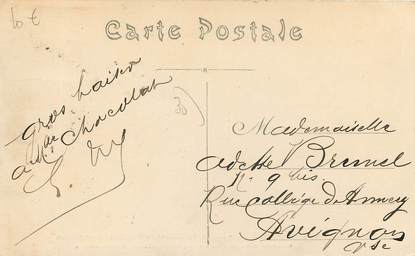 10 €
Carte Postale
gros baiser
au Chocolat
30
Mademoiselle
Odette Bremel
N. 9 bis
Rue Collège d'Annecy
Avignon
Vse